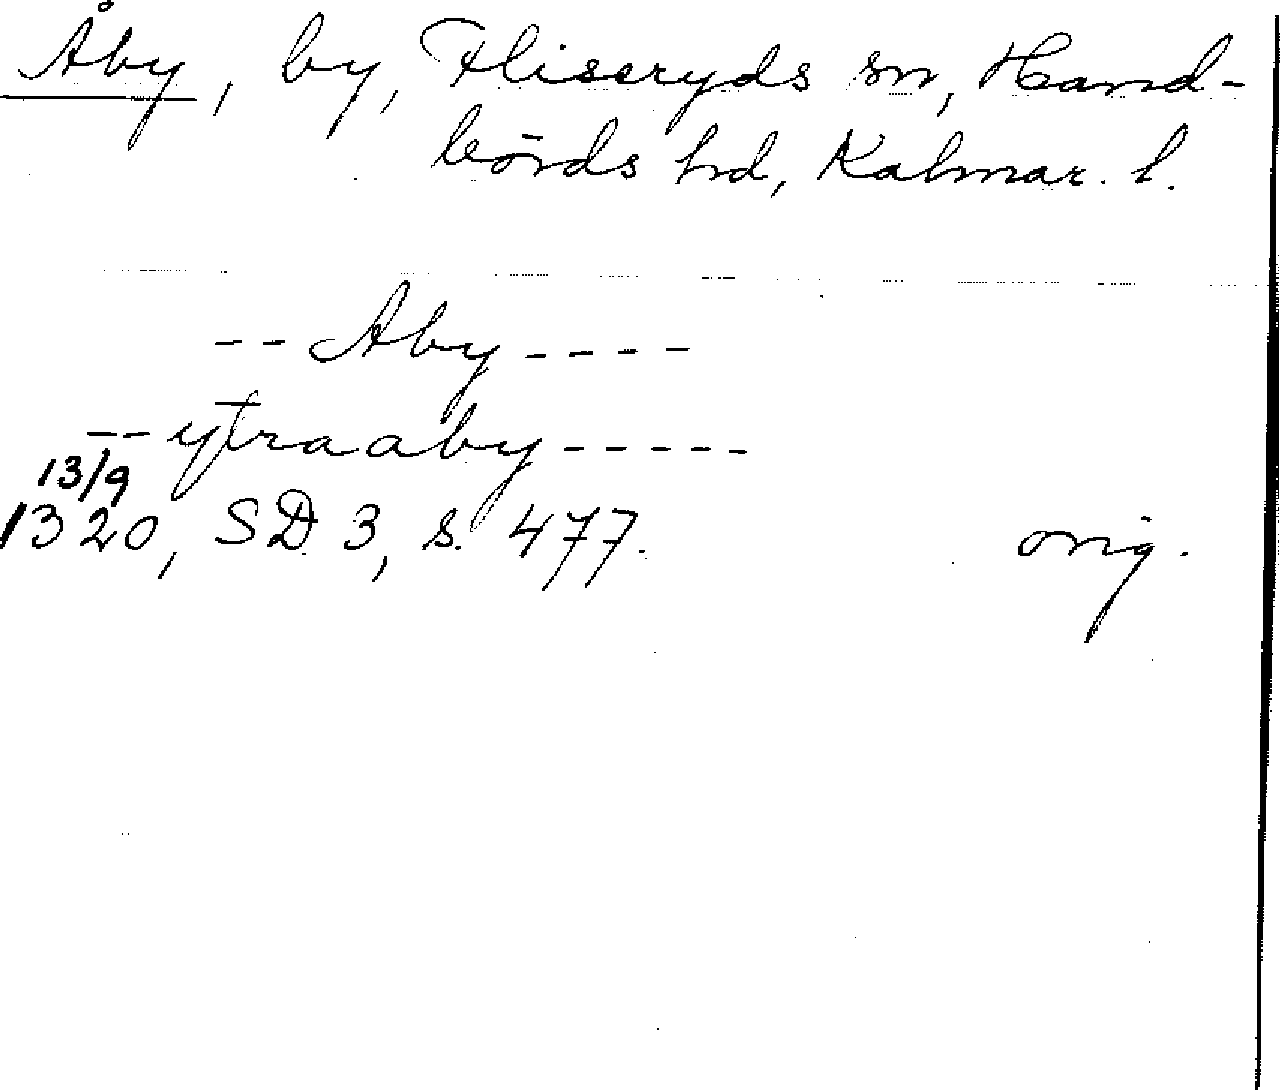 Åby, by, Fliseryds sn, Hand-
börds hd, Kalmar. l.
-- Aby ----
-- ytraaby -----
13/9
1320, SD 3, s. 477.
orig.